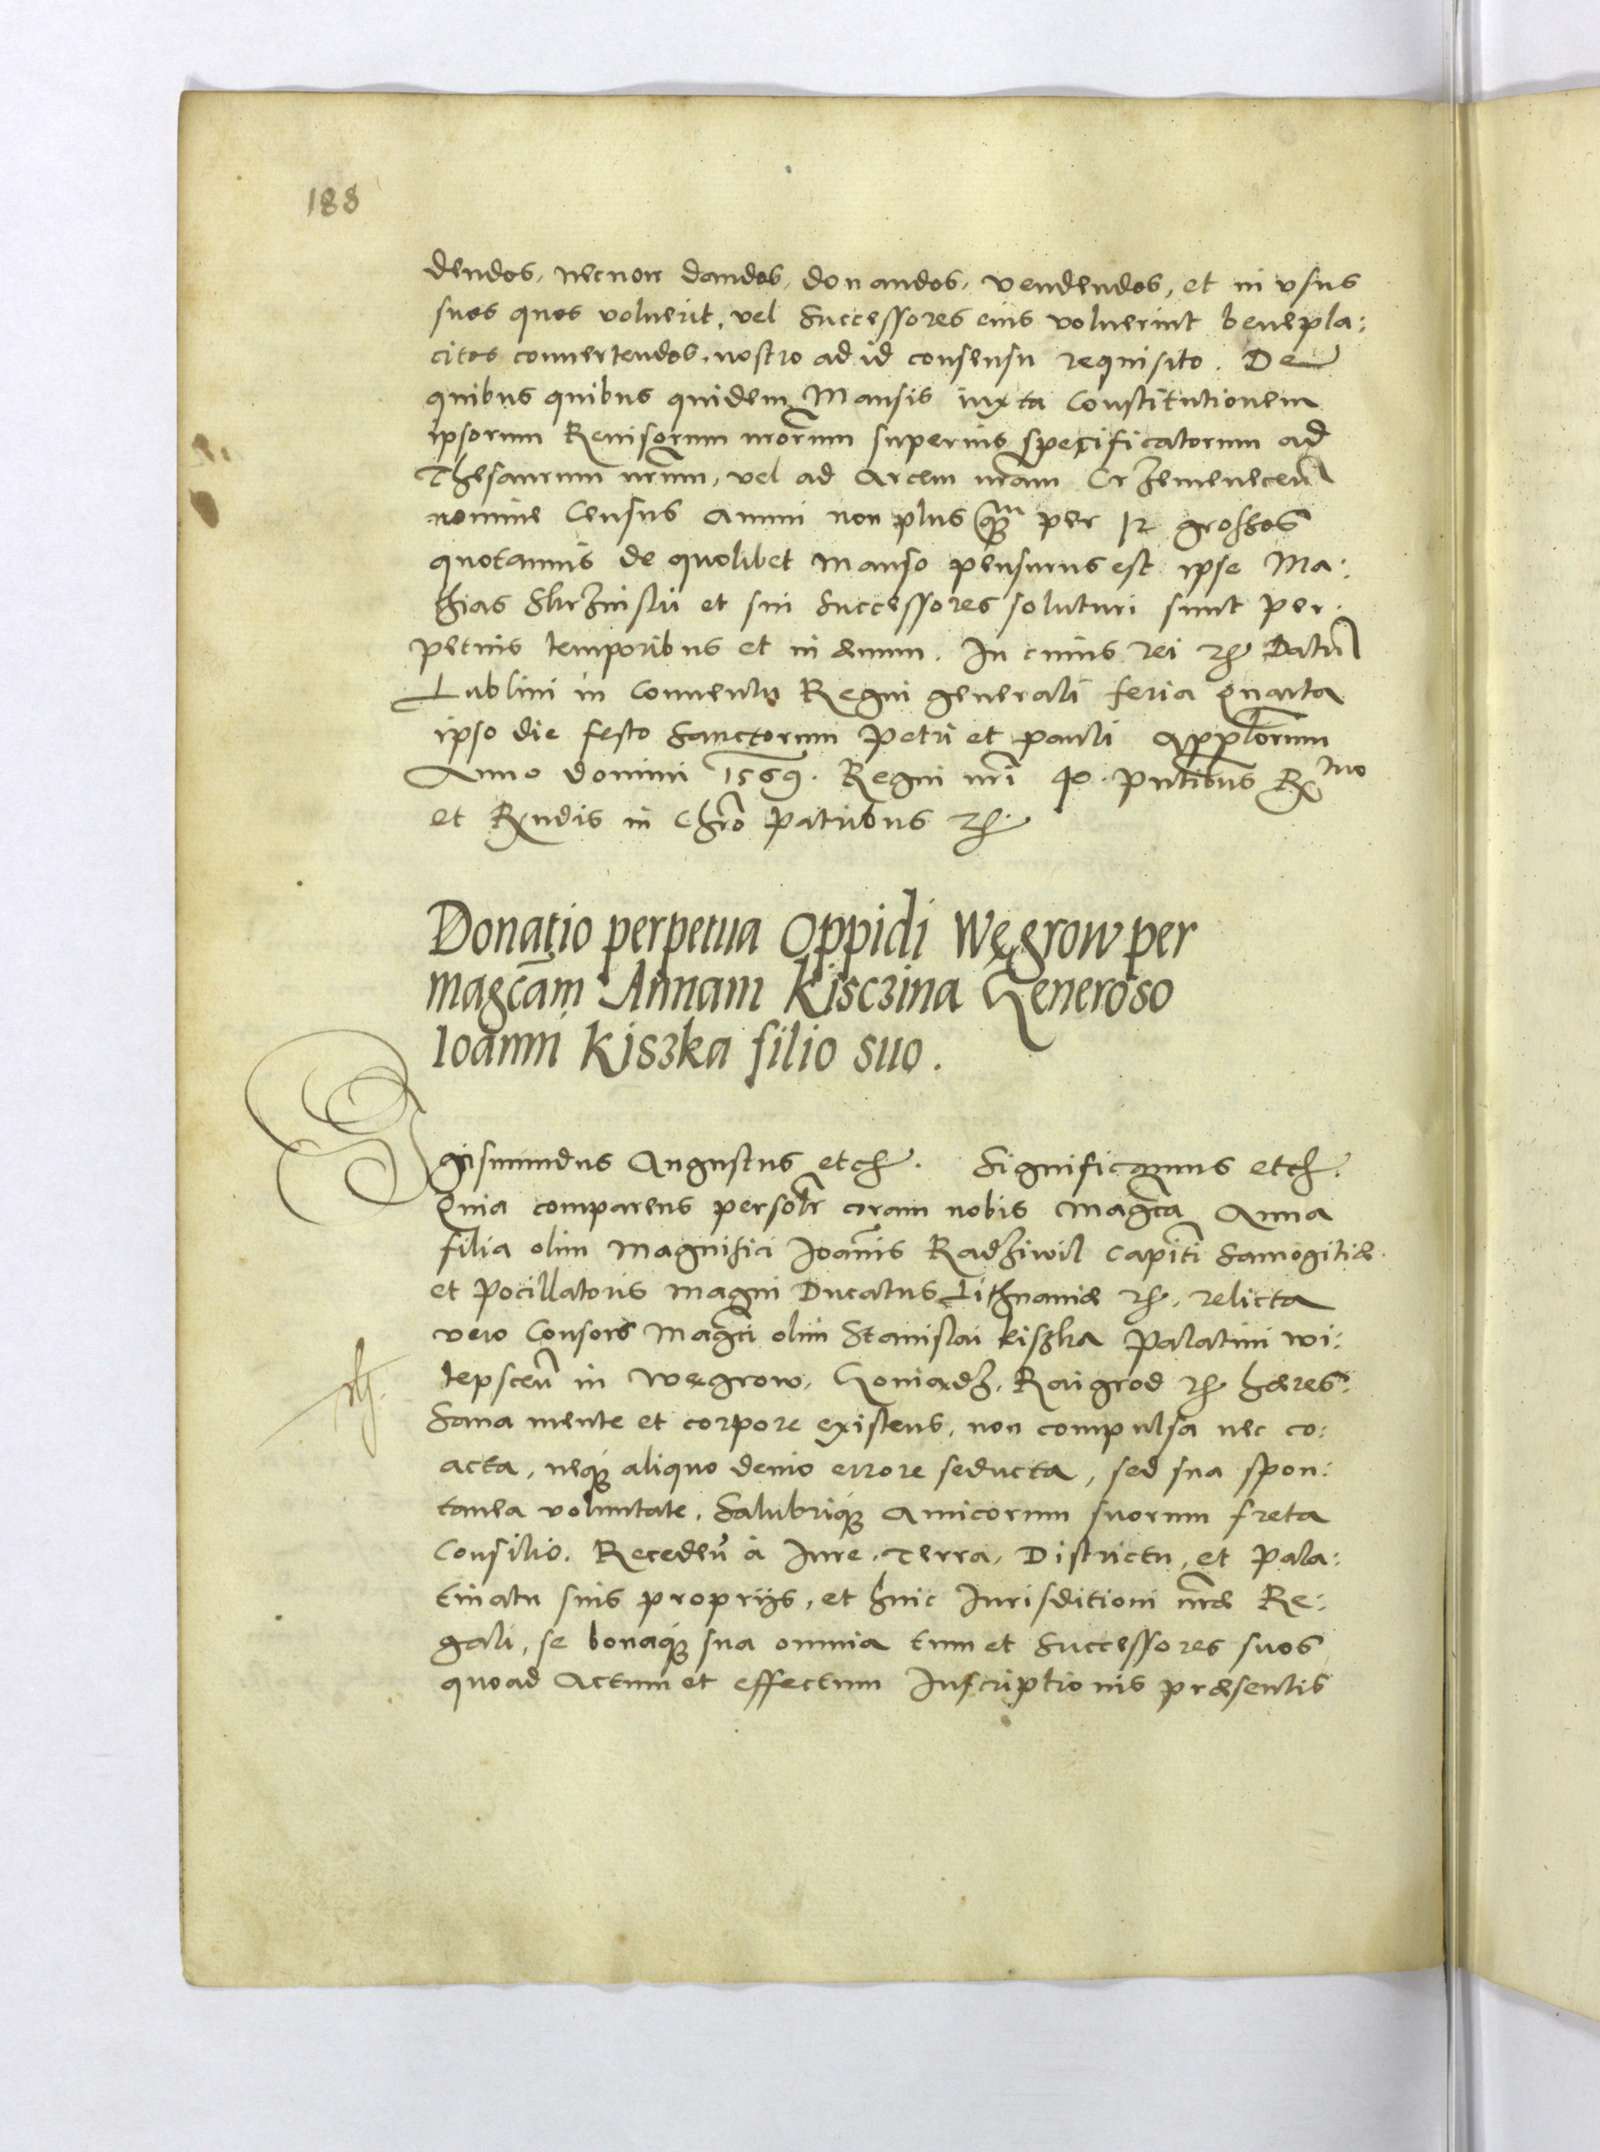 188
dendos, necnon dandos, donandos, vendendos, et in vsus
suos quos voluerit, vel Successores eius voluerint benepla:
citos conuertendos, nostro ad id consensu requisito. De
quibus quibus quidem Mansis iuxta Constitutionem
ipsorum Reuisorum nrorum superius specificatorum ad
Thesaurum nrum, vel ad Arcem nram Crzemenecen
nomine Census Annui non plus qm per 12 grossos
quotannis de quolibet manso pensurus est ipse Ma:
thias et sui Successores soluturi sunt per:
petuis temporibus et in æuum. In cuius rei Datum
Lublini in Conuentu Regni generali feria Quarta
ipso die festo Sanctorum Petri et Pauli Applorum
Anno domini 1569. Regni nri 40. Pntibus Rmo
et Rndis in Chro Patribus
Donatio perpetua Oppidi Węgrow per
magcam Annam Kisczina Generoso
Ioanni Kiszka filio suo.
Sigismundus Augustus etc. Significamus etc.
Quia comparens personlr coram nobis Magca Anna
filia olim Magnifici Joannis Radziwil Capiti Samogitiæ
et Pocillatoris Magni Ducatus Lithuaniæ relicta
vero Consors Magci olim Stanislai Kiszka Palatini Wi:
tepscen in Węgrow, Goniądz, Raigrod hæres:
Sana mente et corpore existens, non compulsa nec co:
acta, neque aliquo deuio errore seducta, sed sua spon:
tanea voluntate, Salubrique Amicorum suorum freta
Consilio. Receden à Iure, Terra, Districtu, et Pala:
tinatu suis proprijs, et huic Iurisditioni nræ Re:
gali, se bonaque sua omnia tum et Successores suos
quoad Actum et effectum Inscriptionis præsentis